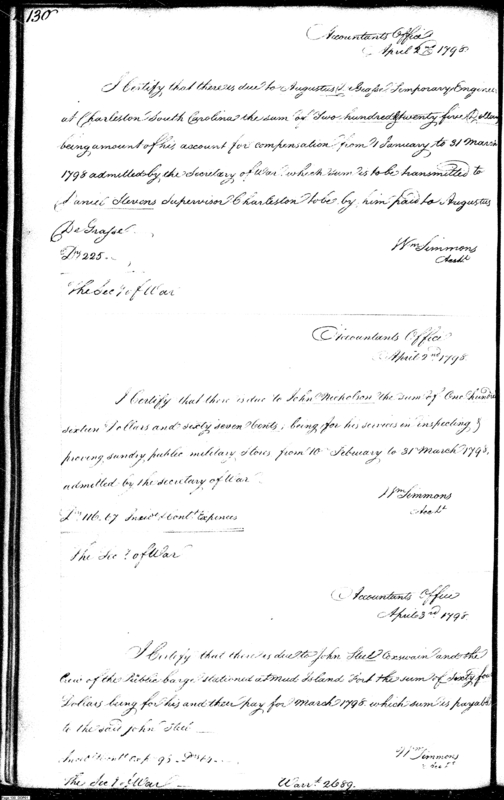 130
Accountants Office
April 2nd 1798
I Certify that there is due to Augustus D Grasse Temporary Engineer
at Charleston South Carolina the sum of Two hundred & twenty five Dollars
being amount of his account for compensation from 1 January to 31 March
1798 admitted by the Secretary of War which sum is to be transmitted to
Daniel Stevens Supervisor Charleston to be by him paid to Augustus
De Grasse
Ds 225
Wm Simmons
Acct
The Secy of War
Accountants Office
April 2nd 1798
I Certify that there is due to John Nicholson the sum of One hundred
sixteen Dollars and sixty seven Cents, being for his services in inspecting &
proving sundry public military stores from 10 Febuary to 31 March 1798
admitted by the secretary of War
Wm Simmons
Acct
Ds 116.67 Contt Expences
The Secy of War
Accountants Office
April 3rd 1798
I Certify that there is due to John Steel Coxswain and the
Crew of the Public barge stationed at Mud Island Fort the sum of Sixty four
Dollars being for his and their pay for March 1798 which sum is payable
to the said John Steel
Wm Simmons
Acct
The Secy of War
Warrt 2689